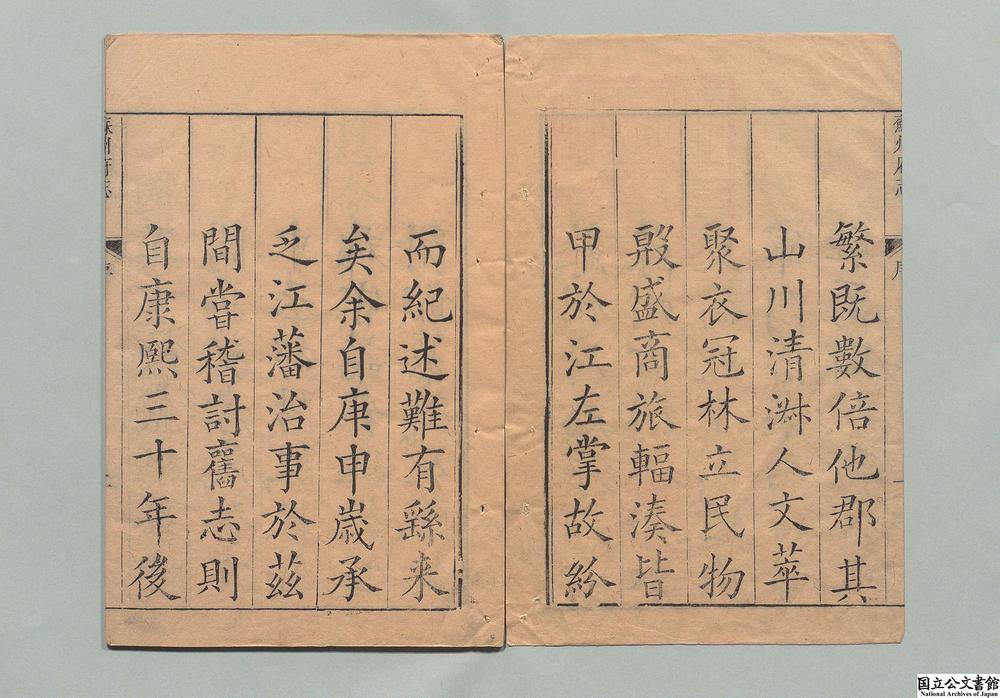 蘇州府志
序
繁既數倍他郡其
山川清淋人文萃
聚衣冠林立民物
殷盛商旅輻湊皆
甲於江左掌故紛
而紀述難有繇来
矣余自庚申歲承
乏江藩治事於茲
間嘗稽討舊志則
自康熙三十年後
蘇州府志
序
国立公文書館
National Archives of Japan